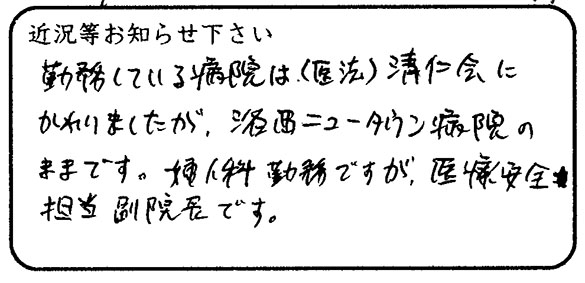 近況等お知らせ下さい
勤務している病院は、(医法)清仁会に
かわりましたが、洛西ニュータウン病院の
ままです。婦人科勤務ですが、医療安全
担当副院長です。